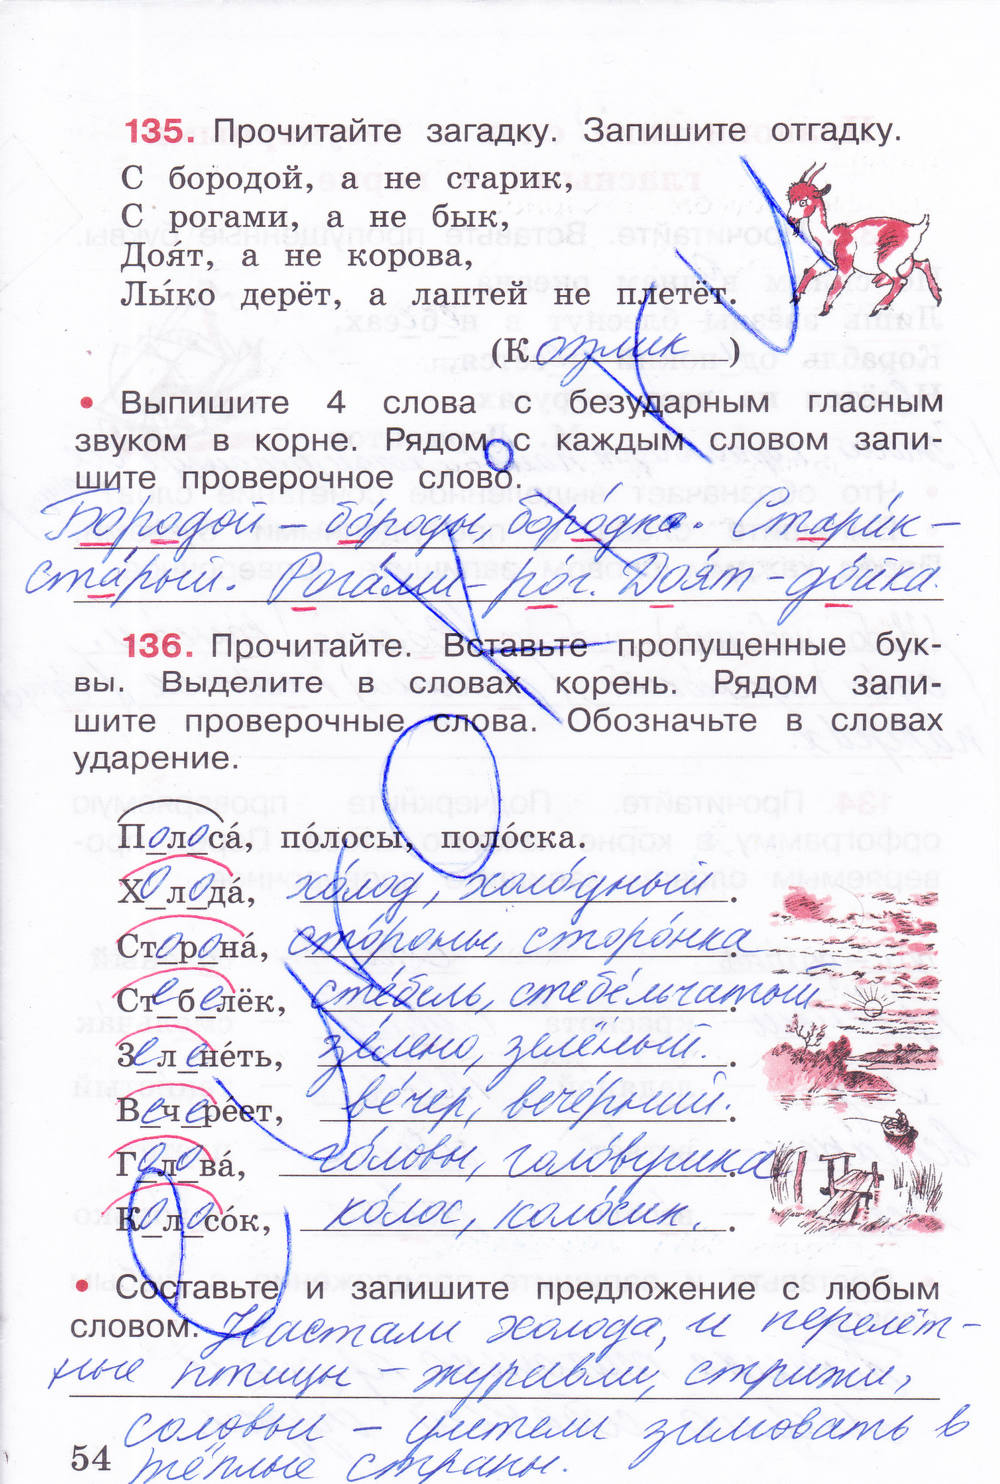 135. Прочитайте загадку. Запишите отгадку.
С бородой, а не старик,
С рогами, а не бык,
Доя́т, а не корова,
Лы́ко дерёт, а лаптей не плетёт.
(Козлик)
• Выпишите 4 слова с безударным гласным
звуком в корне. Рядом с каждым словом запи-
шите проверочное слово.
Бородой – бо́роды, боро́дка. Стари́к –
ста́рый. Рога́ми – рог. Доя́т – до́йка.
136. Прочитайте. Вставьте пропущенные бук-
вы. Выделите в словах корень. Рядом запи-
шите проверочные слова. Обозначьте в словах
ударение.
Полоса́, по́лосы, поло́ска.
Холода́, хо́лод, холо́дный.
Сторона́, сто́роны, сторо́нка.
Стебелёк, сте́бель, стебе́льчатый.
Зелене́ть, зе́лено, зелёный.
Вечере́ет, ве́чер, вече́рний.
Голова́, го́ловы, голо́вушка.
Колосо́к, ко́лос, коло́сик.
• Составьте и запишите предложение с любым
словом. Настали холода, и перелёт-
ные птицы – журавли, стрижи,
соловьи – улетели зимовать в
54 тёплые страны.